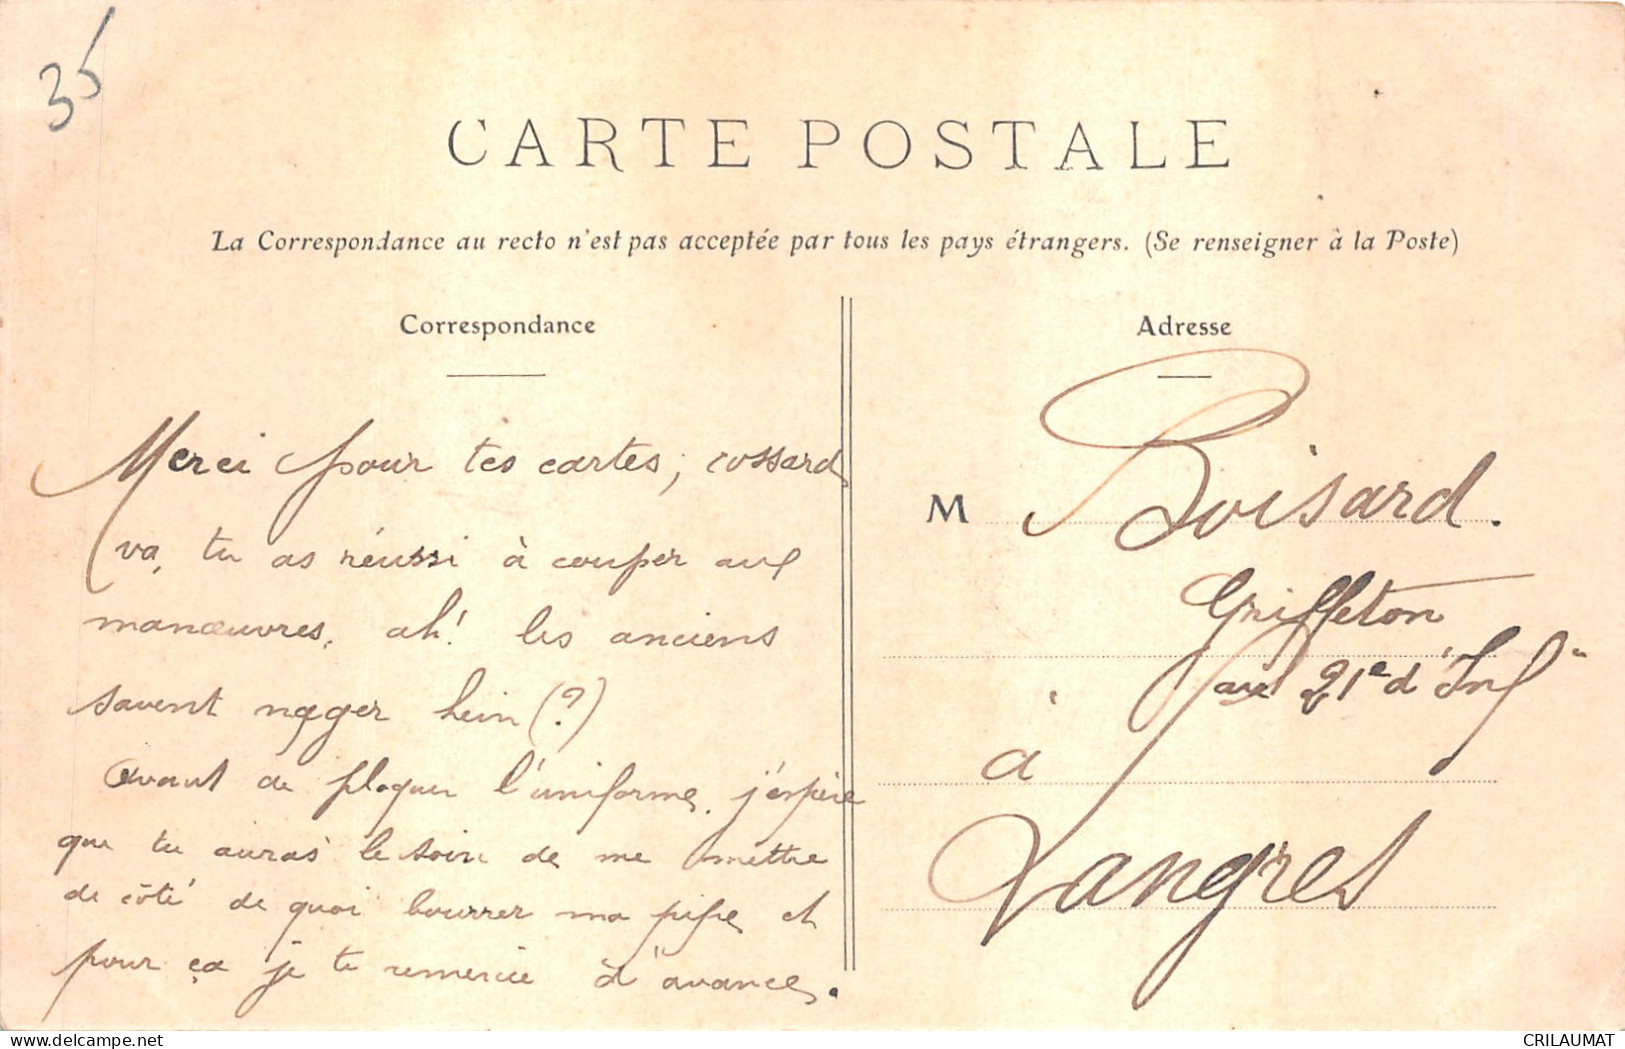 35
CARTE POSTALE
La Correspondance au recto n'est pas acceptée par tous les pays étrangers. (Se renseigner à la Poste)
Correspondance
Merci pour tes cartes, cossard
va, tu as réussi à couper aux
manœuvres, ah! les anciens
savent nager hein (?)
Avant de plaquer l'uniforme, j'espère
que tu auras le soin de me mettre
de côté de quoi bourrer ma pipe, et
pour ça je te remercie d'avance.
Adresse
M Boisard.
Griffeton
au 21e d'Inf
à
Langres
www.delcampe.net
CRILAUMAT